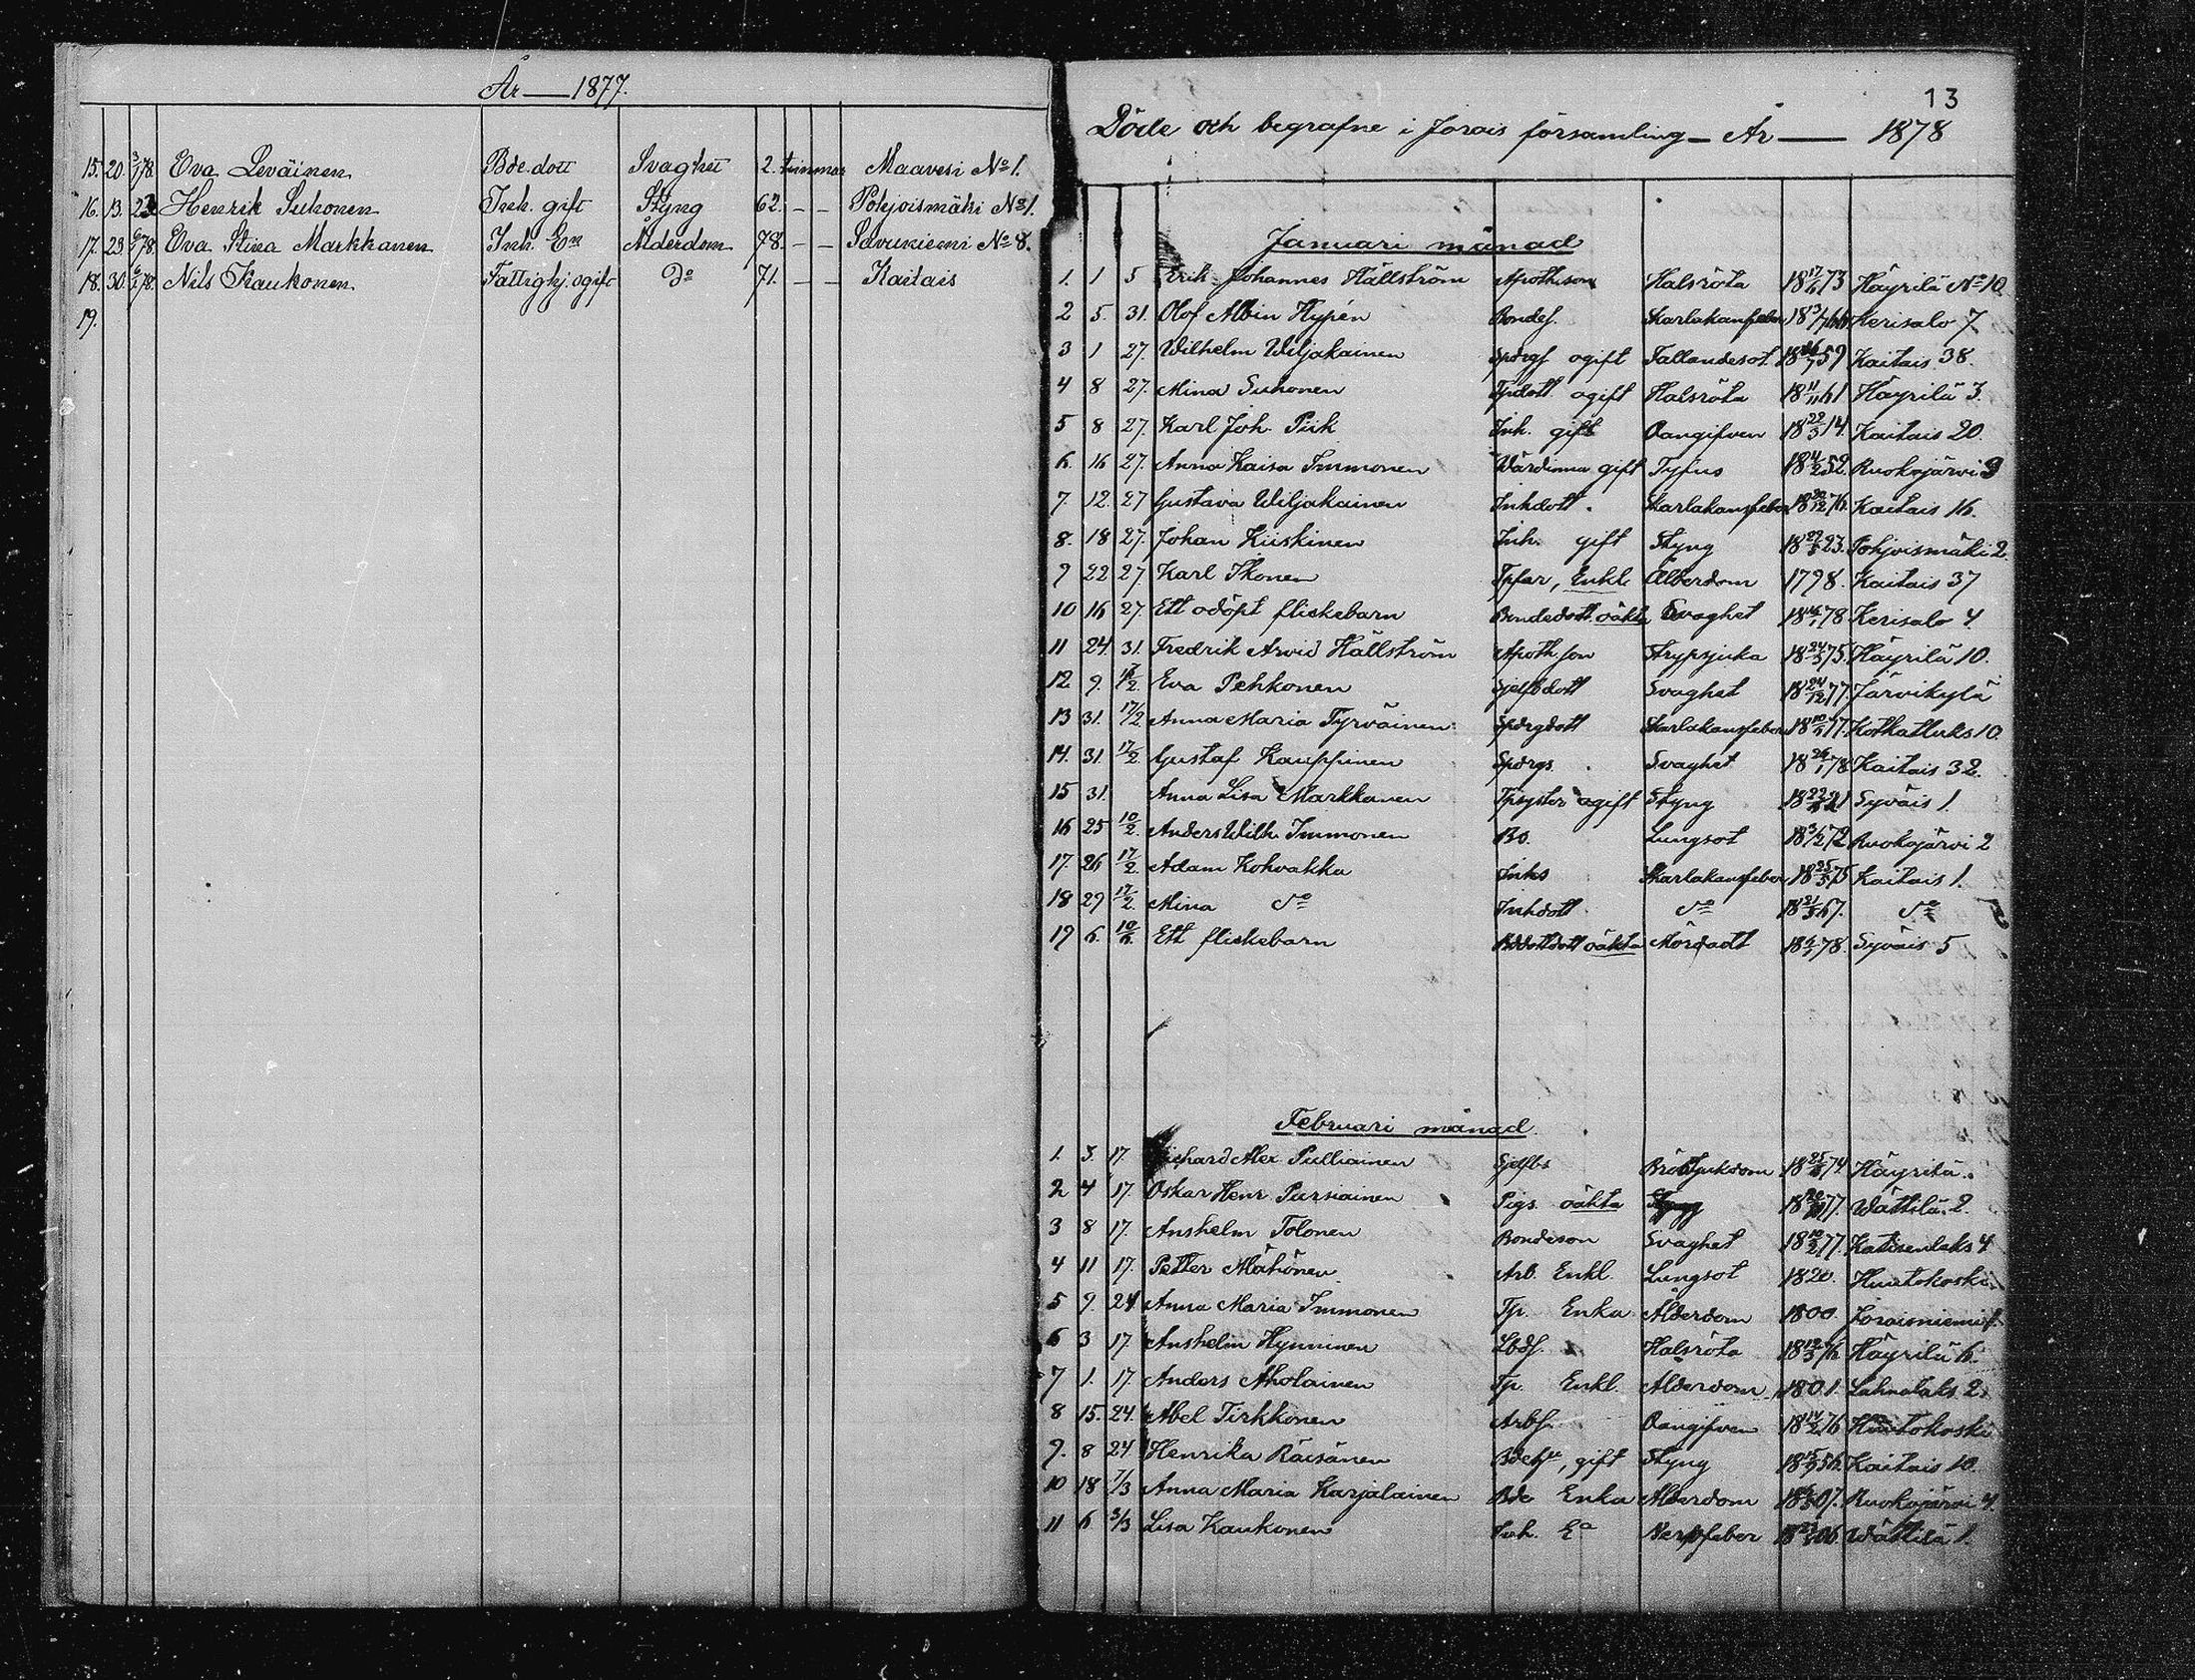 År — 1877.
15. 20. 3/1 78. Eva Leväinen Bde.dott Svaghet 2. timmar Maavesi No 1.
16. 13. 23 Henrik Suhonen Inh. gift Styng 62. — — Pohjoismäki No 1.
17. 23. 6/1 78. Eva Stina Markkanen Inh. Ea Ålderdom 78. — — Savuniemi No 8.
18. 30. 6/1 78. Nils Kaukonen Fattighj. ogift Do 71. — — Kaitais
19.
13
Döde och begrafne i Jorois församling — År — 1878
Januari månad
1. 1 5 Erik Johannes Hällström Apothson Halsröta 18 17/6 73 Häyrilä No 10
2 5. 31. Olof Albin Hypén Bondes. Skarlakansfeber Kerisalo 7
3 1 27. Wilhelm Wiljakainen Spdrgs ogift Fallandesot 59 Kaitais 38.
4 8 27. Mina Suhonen Tpdott ogift Halsröta 18 11/11 61 Häyrilä 3.
5 8 27. Karl Joh. Piik Inh. gift Oangifven 18 22/3 14. Kaitais 20.
6. 16 27. Anna Kaisa Immonen Wärdinna gift Tyfus 18 4/2 52. Ruokojärvi 9
7. 12. 27 Gustava Wiljakainen Inhdott. Skarlakansfeber 76. Kaitais 16.
8. 18 27. Johan Kiiskinen Inh. gift Styng 23. Pohjoismäki 2.
9 22 27 Karl Ikonen Tpfar, Enkl. Ålderdom 1798. Kaitais 37
10 16 27. Ett odöpt flickebarn Bondedott. oäkta Svaghet 18 16/1 78 Kerisalo 4.
11 24. 31. Fredrik Arvid Hällström Apoth son Strypsjuka 18 24/3 75. Häyrilä 10.
12 9. Eva Pehkonen Sjelfbdott Svaghet 18 24/12 77. Järvikylä
13 31. 17/2. Anna Maria Tyrväinen Spdrgdott Skarlakansfeber 77. Kotkatlaks 10.
14. 31. 17/2. Gustaf Kauppinen Spdrgs. Svaghet 78 Kaitais 32.
15 31. Anna Lisa Markkanen Tpsyster ogift Styng 21 Syväis 1.
16 25 10/2. Anders Wilh. Immonen Bs. Lungsot 18 3/2 72 Ruokojärvi 2
17. 26 17/2. Adam Kohvakka Inhs Skarlakansfeber 18 25/3 75 Kaitais 1.
18 29 17/2. Mina Do Inhdott. Do 67. Do
19 6. Ett flickebarn oäkta Mördadt 78. Syväis 5
Februari månad
1. 3. 17. Richard Alex. Pulliainen Sjelfbs Bröstsjukdom 74. Häyrilä.
2 4 17. Oskar Henr. Pursiainen Pigs. oäkta Styng 77. Wättilä. 2.
3 8 17. Anshelm Tolonen Bondeson Svaghet 77. Katisenlaks 4
4 11 17. Petter Mähönen Arb. Enkl. Lungsot 1820. Huutokoski.
5 9. 24 Anna Maria Immonen Tp. Enka Ålderdom 1800. Joroisniemi
6 3 17. Anshelm Hynninen Halsröta 76. Häyrilä 6.
7 1. 17. Anders Aholainen Tp. Enkl. Ålderdom 1801. Lahnalaks 2.
8 15. 24. Abel Tirkkonen Arbs. Oangifven 18 14/2 76 Huutokoski
9. 8 24 Henrika Räisänen gift Styng 56. Kaitais 10.
10 18 7/3 Anna Maria Karjalainen Bde Enka Ålderdom 07. Ruokojärvi 4.
11 6 3/3 Lisa Kaukonen Inh. Ea Nervfeber 06. Wättilä 1.